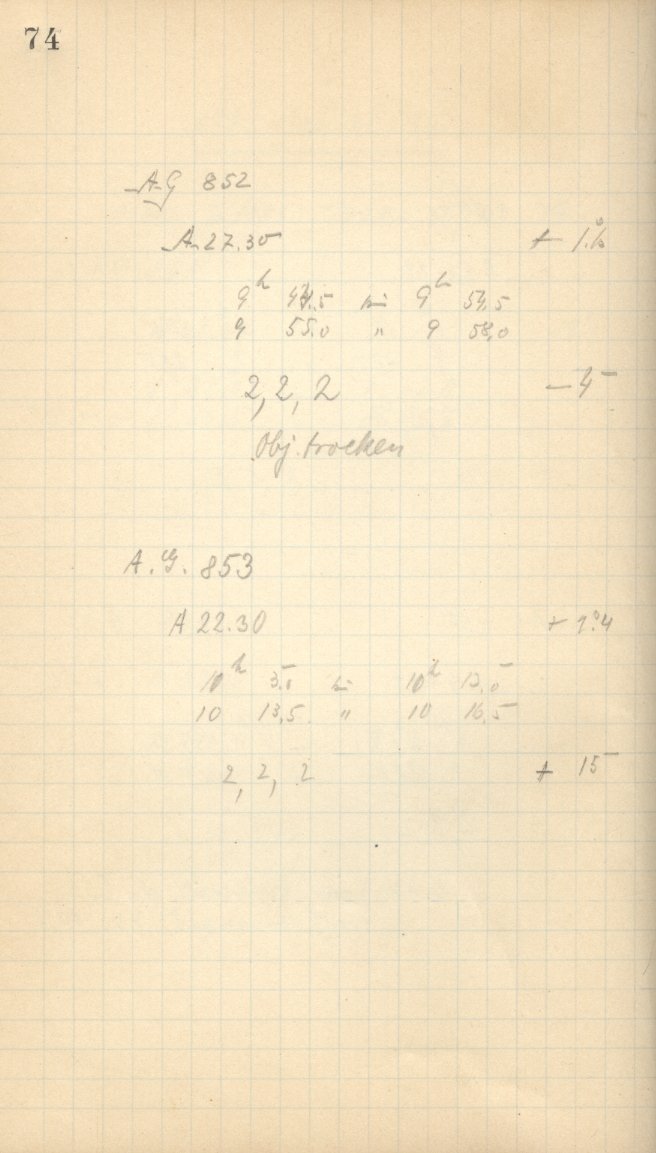 74
A.G. 852
A 27.30 + 1.°6
9h 44.5 bis 9h 54.5
9 55.0 " 9 58,0
2, 2, 2 — 5
Obj. trocken
A.G. 853
A 22.30 + 1.°4
10h 3.0 bis 10h 13,0
10 13,5 " 10 16,5
2, 2, 2 + 15